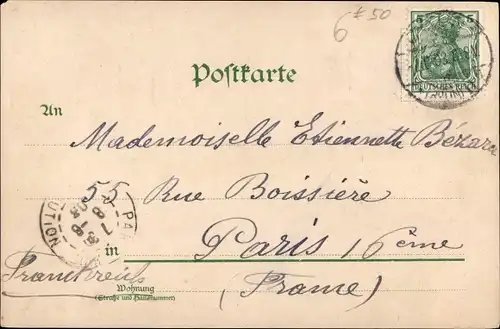 6 € 50
5 5
DEUTSCHES REICH
Postkarte
An
Mademoiselle Etiennette Bézard
55 Rue Boissière
in Paris 16ème
Frankreich
Wohnung
(Straße und Hausnummer)
(France)